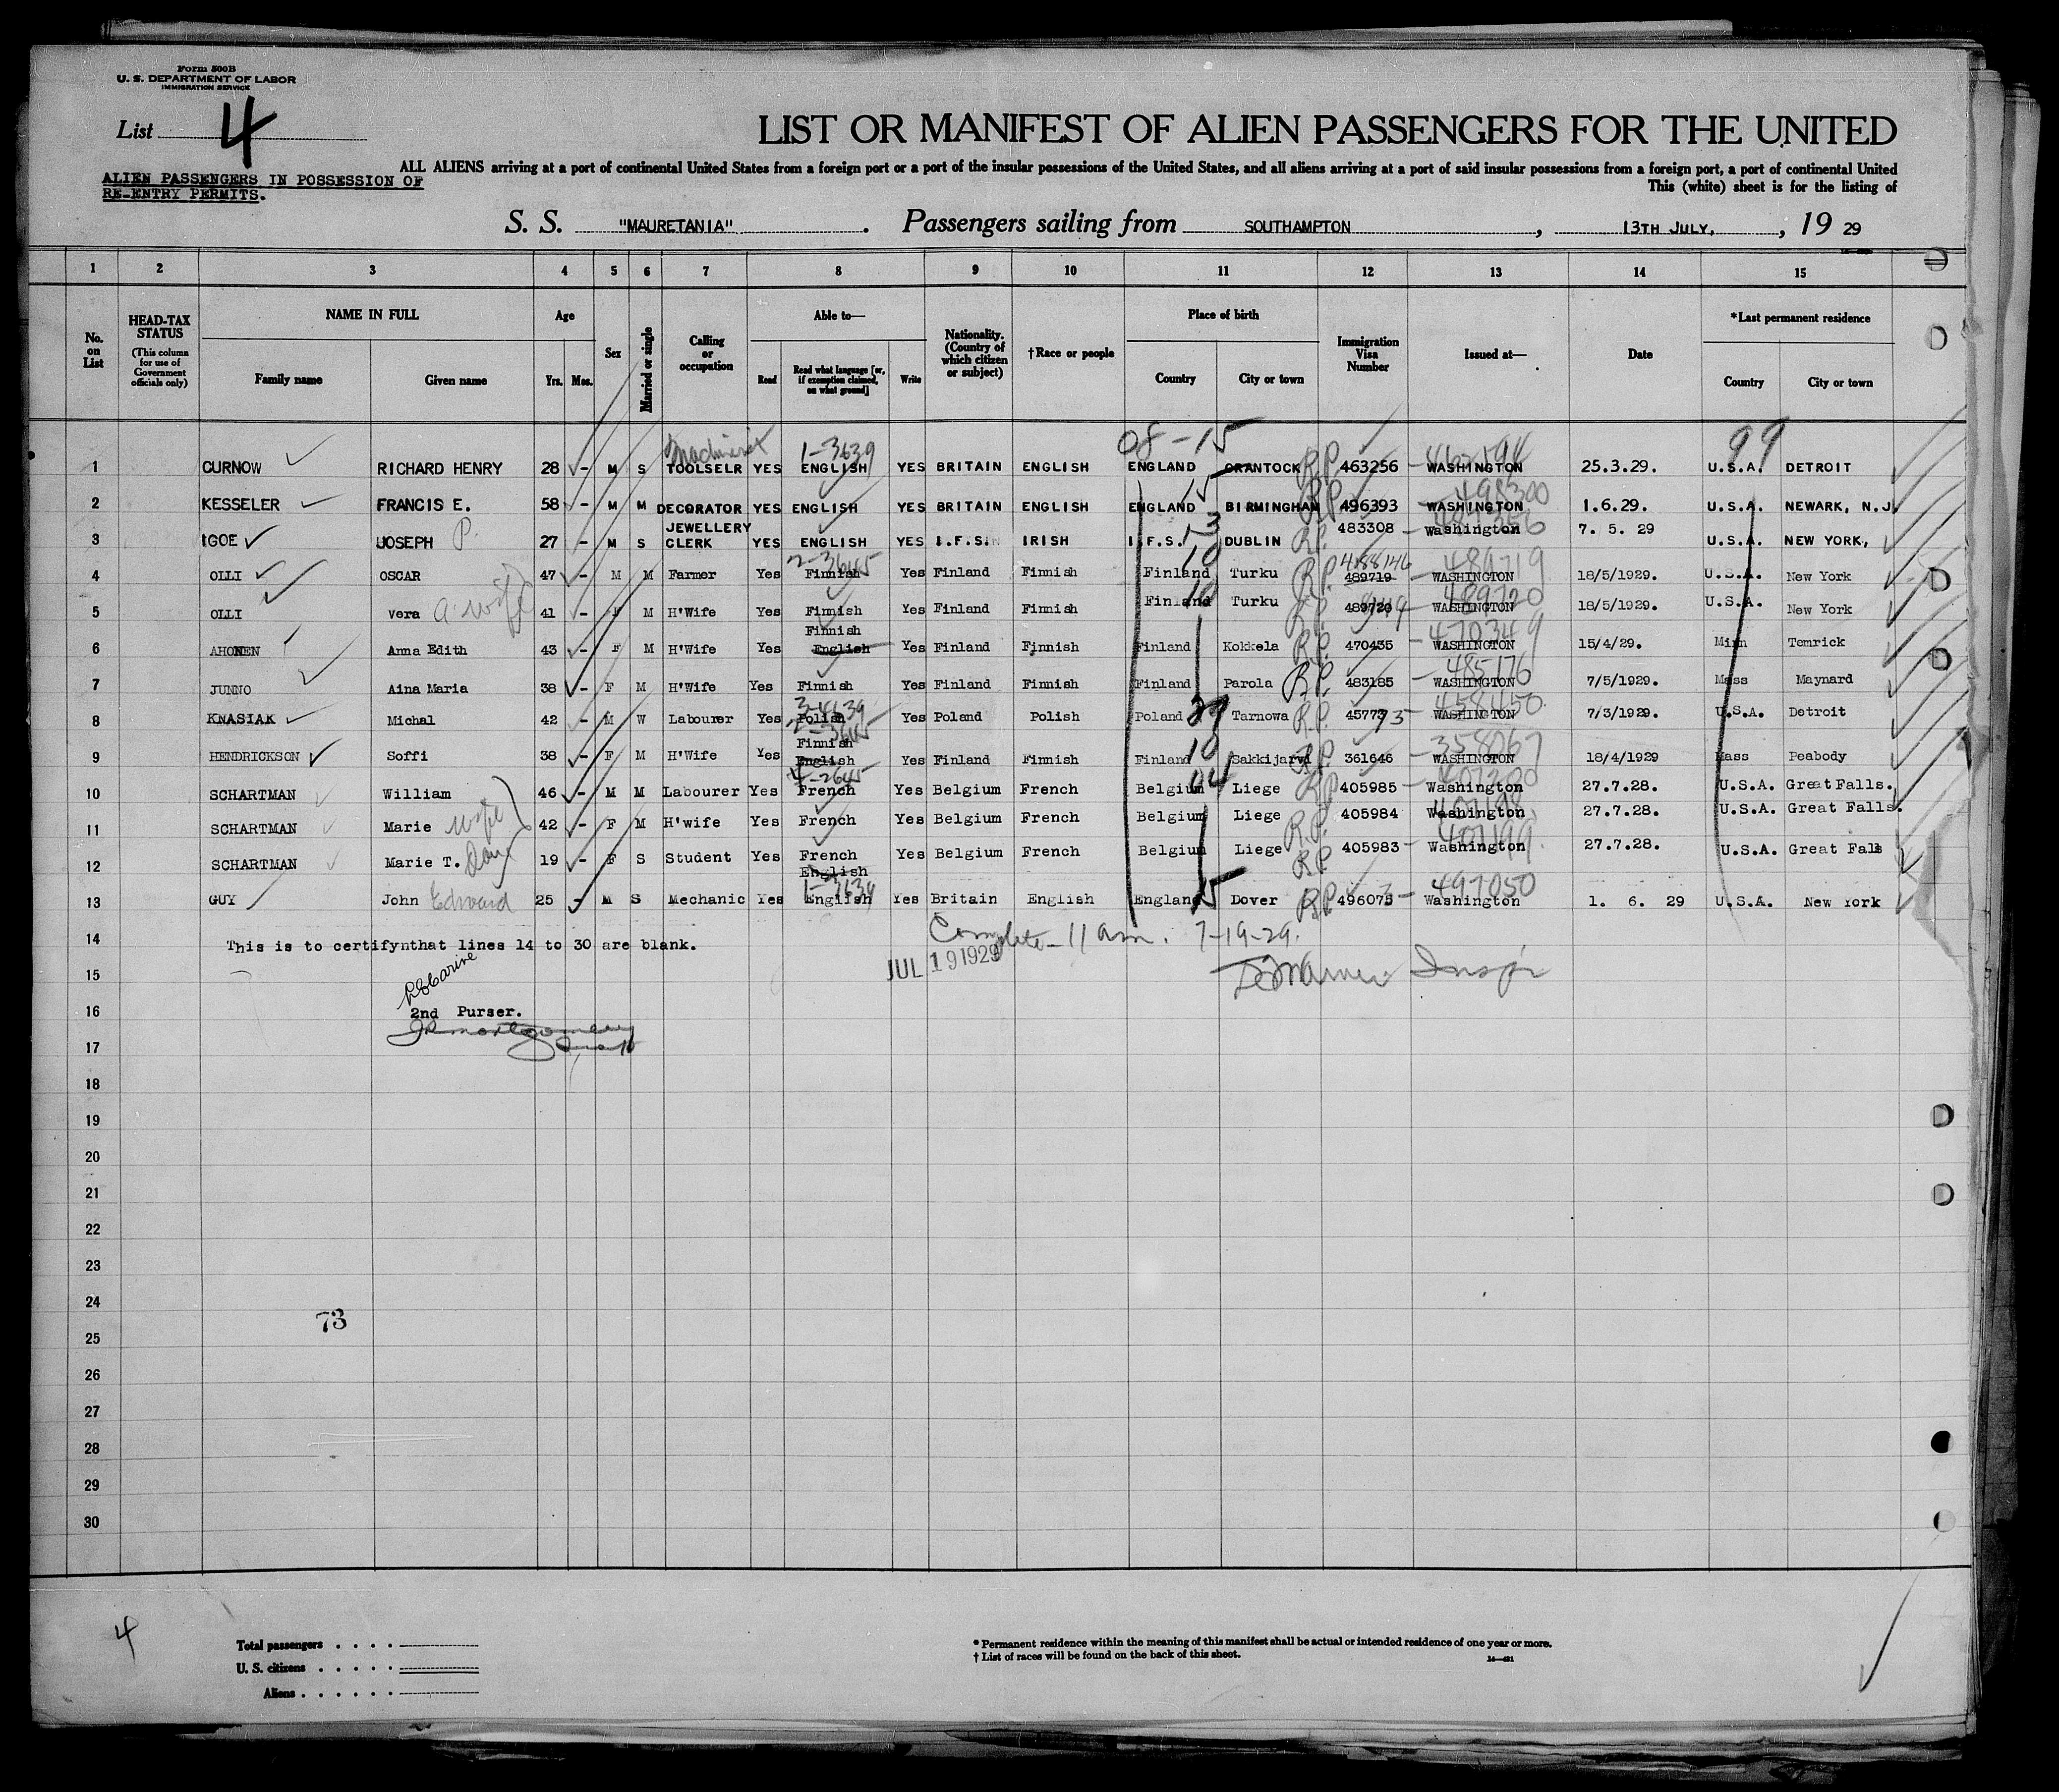 Form 500B
U. S. DEPARTMENT OF LABOR
IMMIGRATION SERVICE
List 4
LIST OR MANIFEST OF ALIEN PASSENGERS FOR THE UNITED
ALL ALIENS arriving at a port of continental United States from a foreign port or a port of the insular possessions of the United States, and all aliens arriving at a port of said insular possessions from a foreign port, a port of continental United
ALIEN PASSENGERS IN POSSESSION OF
RE-ENTRY PERMITS.
This (white) sheet is for the listing of
S. S. "MAURETANIA". Passengers sailing from SOUTHAMPTON, 13TH JULY, , 19 29
1 2 3 4 5 6 7 8 9 10 11 12 13 14 15
No. on List
HEAD-TAX STATUS (This column for use of Government officials only)
NAME IN FULL
Family name Given name
Age
Yrs. Mos.
Sex
Married or single
Calling or occupation
Able to—
Read Read what language [or, if exemption claimed, on what ground] Write
Nationality. (Country of which citizen or subject)
†Race or people
Place of birth
Country City or town
Immigration Visa Number
Issued at—
Date
*Last permanent residence
Country City or town
Machinist 1-3639 08-15 99
1 CURNOW RICHARD HENRY 28 - M S TOOLSELR YES ENGLISH YES BRITAIN ENGLISH ENGLAND CRANTOCK R.P. 463256 - WASHINGTON 25.3.29. U.S.A. DETROIT
2 KESSELER FRANCIS E. 58 - M M DECORATOR YES ENGLISH YES BRITAIN ENGLISH ENGLAND BIRMINGHAM R.P. 496393 - 498300 WASHINGTON 1.6.29. U.S.A. NEWARK, N.J.
3 IGOE JOSEPH P. 27 - M S JEWELLERY CLERK YES ENGLISH YES I.F.S. IRISH I.F.S. DUBLIN R.P. 483308 - Washington 7. 5. 29 U.S.A. NEW YORK,
2-3645 10 489719
4 OLLI OSCAR 47 - M M Farmer Yes Finnish Yes Finland Finnish Finland Turku R.P. 489719 - WASHINGTON 18/5/1929. U.S.A. New York
5 OLLI Vera a. wife 41 - F M H'Wife Yes Finnish Yes Finland Finnish Finland Turku R.P. 489720 - 489720 WASHINGTON 18/5/1929. U.S.A. New York
6 AHONEN Anna Edith 43 - F M H'Wife Yes Finnish English Yes Finland Finnish Finland Kokkela R.P. 470435 - 470349 WASHINGTON 15/4/29. Minn Temrick
7 JUNNO Aina Maria 38 - F M H'Wife Yes Finnish Yes Finland Finnish Finland Parola R.P. 483185 - 485176 WASHINGTON 7/5/1929. Mass Maynard
8 KNASIAK Michal 42 - M W Labourer Yes Polish Yes Poland Polish Poland Tarnowa R.P. 45773 - 458450 WASHINGTON 7/3/1929. U.S.A. Detroit
9 HENDRICKSON Soffi 38 - F M H'Wife Yes Finnish English Yes Finland Finnish Finland 10 Sakkijarvi R.P. 361646 - 358067 WASHINGTON 18/4/1929 Mass Peabody
4-2645 04
10 SCHARTMAN William 46 - M M Labourer Yes French Yes Belgium French Belgium Liege R.P. 405985 - Washington 27.7.28. U.S.A. Great Falls.
11 SCHARTMAN Marie wife 42 - F M H'wife Yes French Yes Belgium French Belgium Liege R.P. 405984 Washington 27.7.28. U.S.A. Great Falls.
12 SCHARTMAN Marie T. Dau 19 - F S Student Yes French English Yes Belgium French Belgium Liege R.P. 405983 - Washington 27.7.28. U.S.A. Great Falls
13 GUY John Edward 25 - M S Mechanic Yes English Yes Britain English England 15 Dover R.P. 496073 - 497050 Washington 1. 6. 29 U.S.A. New York
14 This is to certifynthat lines 14 to 30 are blank. Complete - 11 am. 7-19-29.
JUL 19 1929
15
16 2nd Purser.
17
18
19
20
21
22
23
24
73
25
26
27
28
29
30
4
Total passengers . . . .
U. S. citizens . . . . .
Aliens . . . . . .
* Permanent residence within the meaning of this manifest shall be actual or intended residence of one year or more.
† List of races will be found on the back of this sheet.